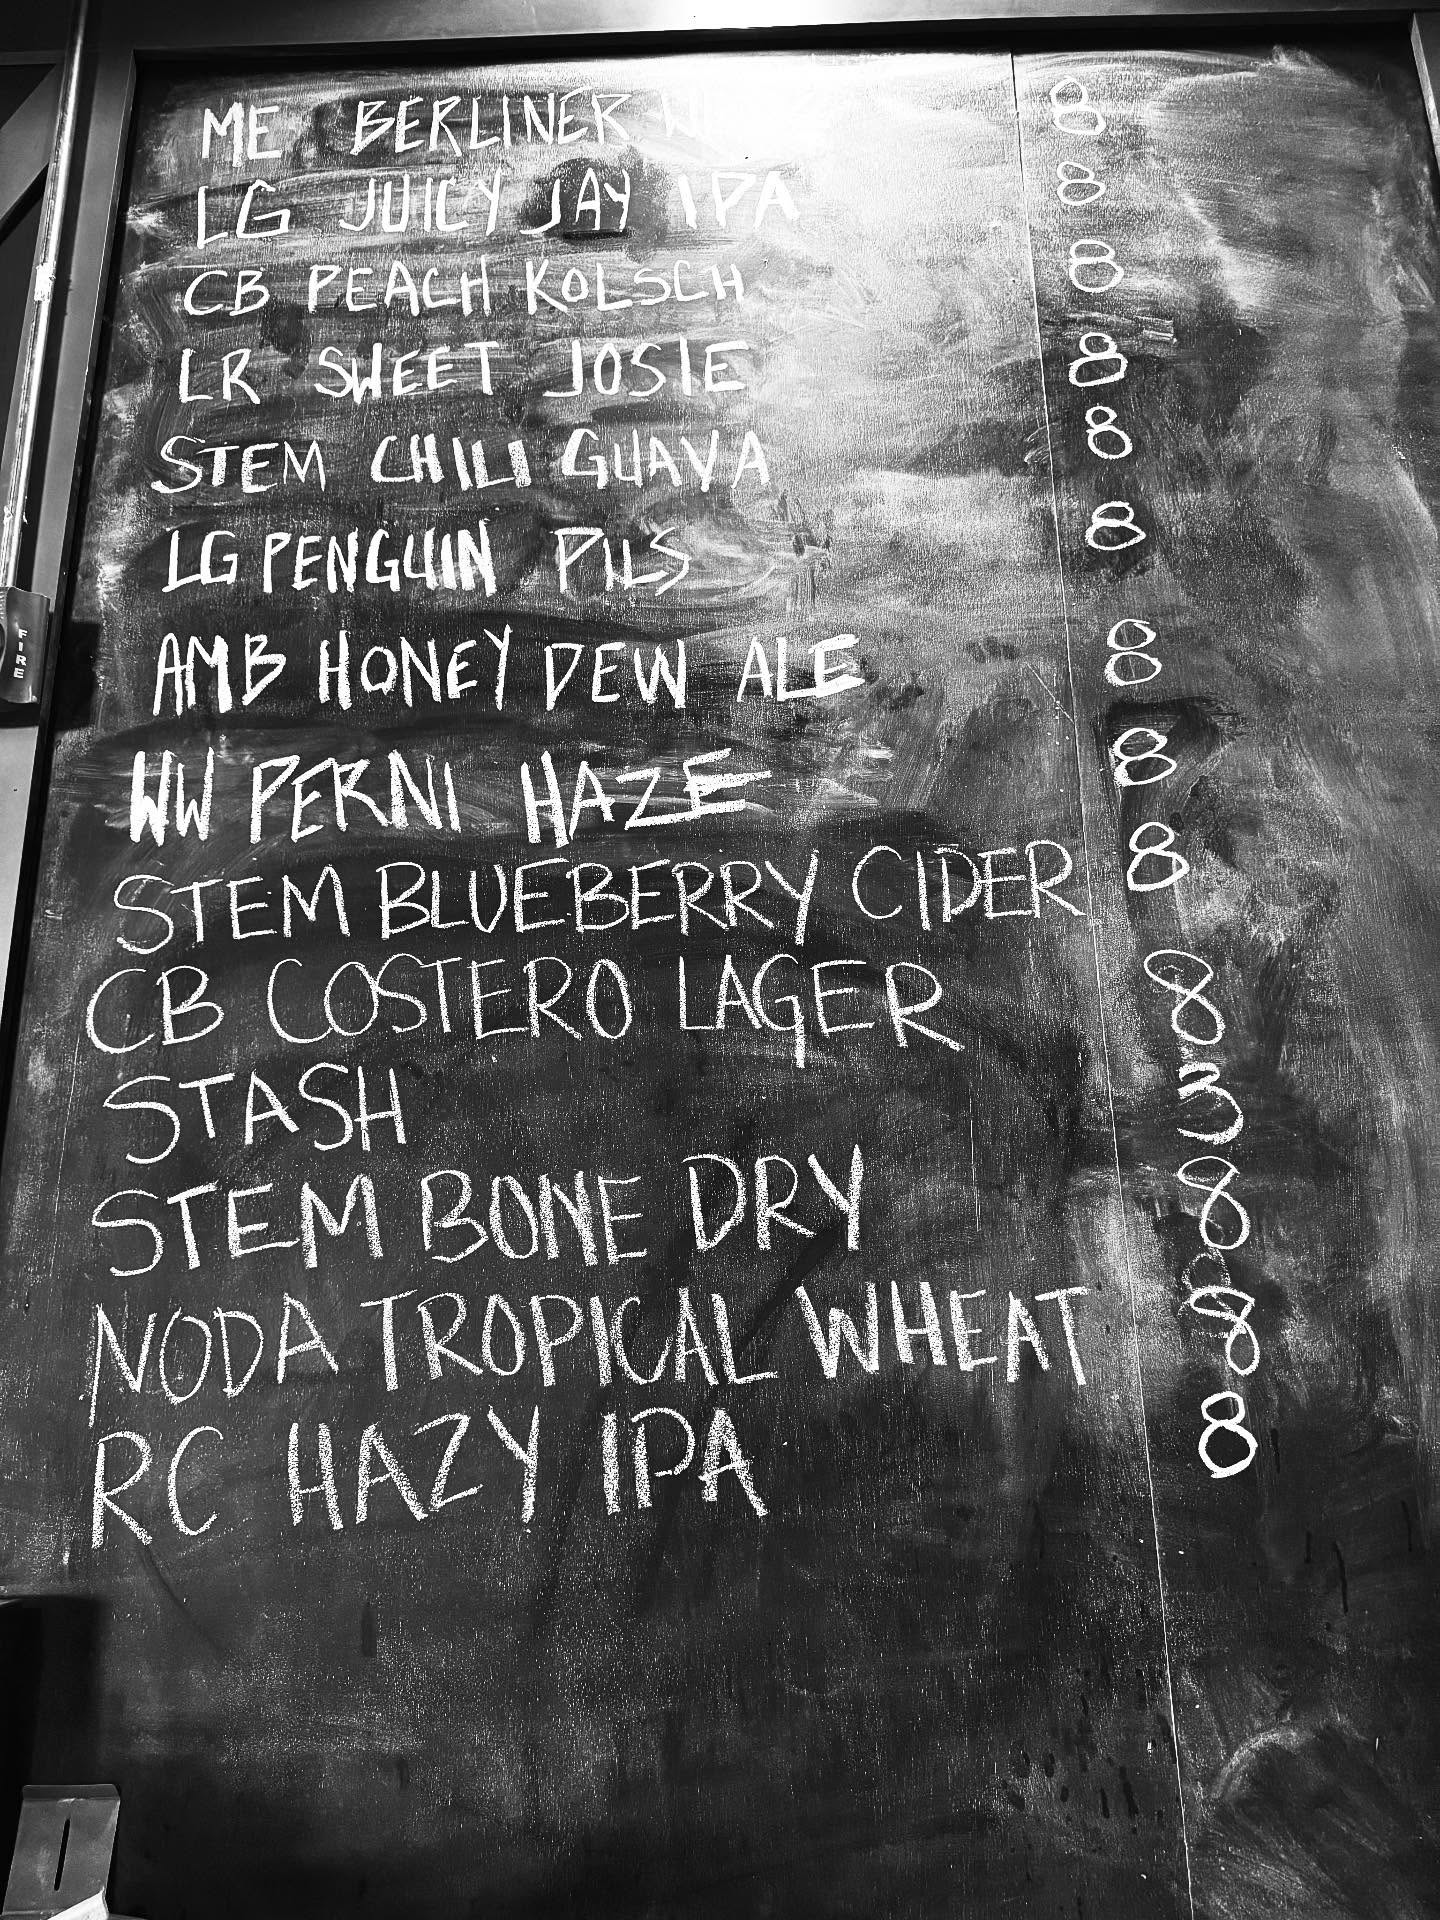 ME BERLINER 8
LG JUICY JAY IPA 8
CB PEACH KOLSCH 8
LR SWEET JOSIE 8
STEM CHILI GUAVA 8
LG PENGUIN PILS 8
AMB HONEY DEW ALE 8
WW PERNI HAZE 8
STEM BLUEBERRY CIDER 8
CB COSTERO LAGER 8
STASH 3
STEM BONE DRY 8
NODA TROPICAL WHEAT 8
RC HAZY IPA 8
FIRE